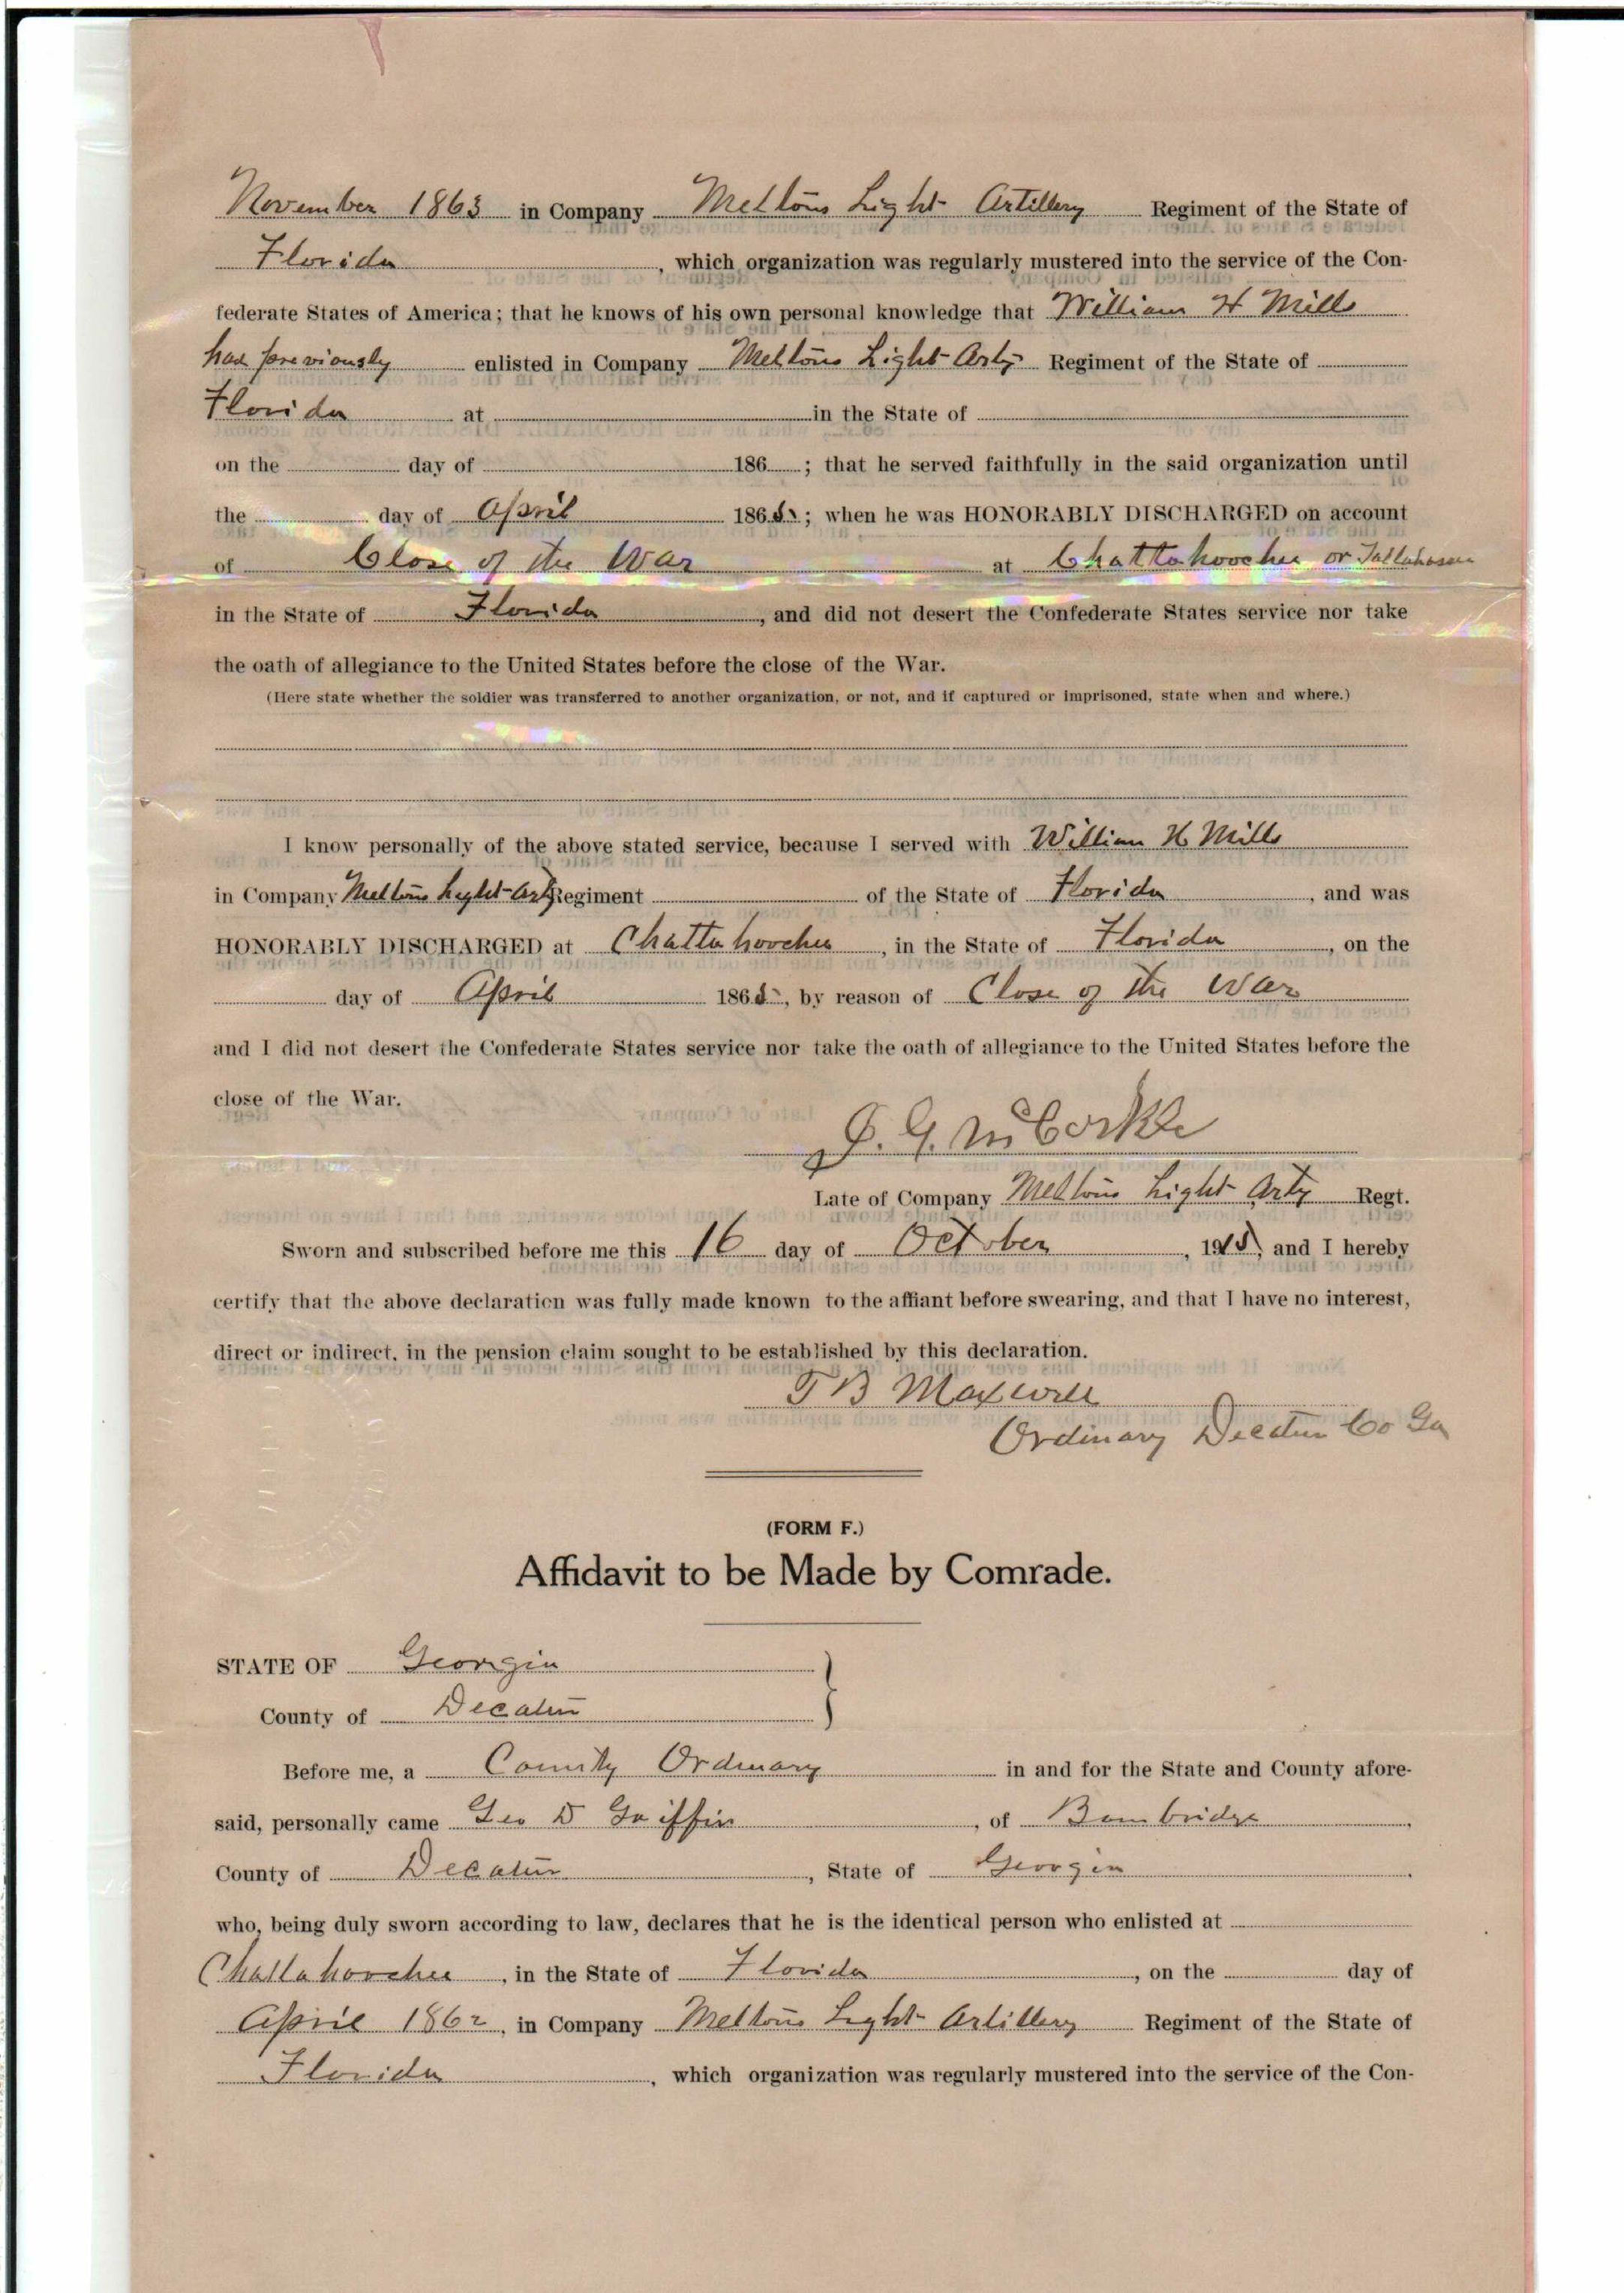 November 1863 in Company Meltons Light Artillery Regiment of the State of
Florida, which organization was regularly mustered into the service of the Con-
federate States of America; that he knows of his own personal knowledge that William H Mills
had previously enlisted in Company Meltons Light Arty Regiment of the State of
Florida at in the State of
on the day of 186 ; that he served faithfully in the said organization until
the day of April 1865; when he was HONORABLY DISCHARGED on account
of Close of the War at Chattahoochee or Tallahassee
in the State of Florida, and did not desert the Confederate States service nor take
the oath of allegiance to the United States before the close of the War.
(Here state whether the soldier was transferred to another organization, or not, and if captured or imprisoned, state when and where.)
I know personally of the above stated service, because I served with William H Mills
in Company Meltons Light Arty Regiment of the State of Florida, and was
HONORABLY DISCHARGED at Chattahoochee, in the State of Florida, on the
day of April 1865, by reason of Close of the War
and I did not desert the Confederate States service nor take the oath of allegiance to the United States before the
close of the War.
G. McCorkle
Late of Company Meltons Light Arty Regt.
Sworn and subscribed before me this 16 day of October, 1915, and I hereby
certify that the above declaration was fully made known to the affiant before swearing, and that I have no interest,
direct or indirect, in the pension claim sought to be established by this declaration.
T B Maxwell
Ordinary Decatur Co Ga
(FORM F.)
Affidavit to be Made by Comrade.
STATE OF Georgia
County of Decatur
Before me, a County Ordinary in and for the State and County afore-
said, personally came Geo D Griffin, of Bainbridge,
County of Decatur, State of Georgia,
who, being duly sworn according to law, declares that he is the identical person who enlisted at
Chattahoochee, in the State of Florida, on the day of
April 1862, in Company Meltons Light Artillery Regiment of the State of
Florida, which organization was regularly mustered into the service of the Con-